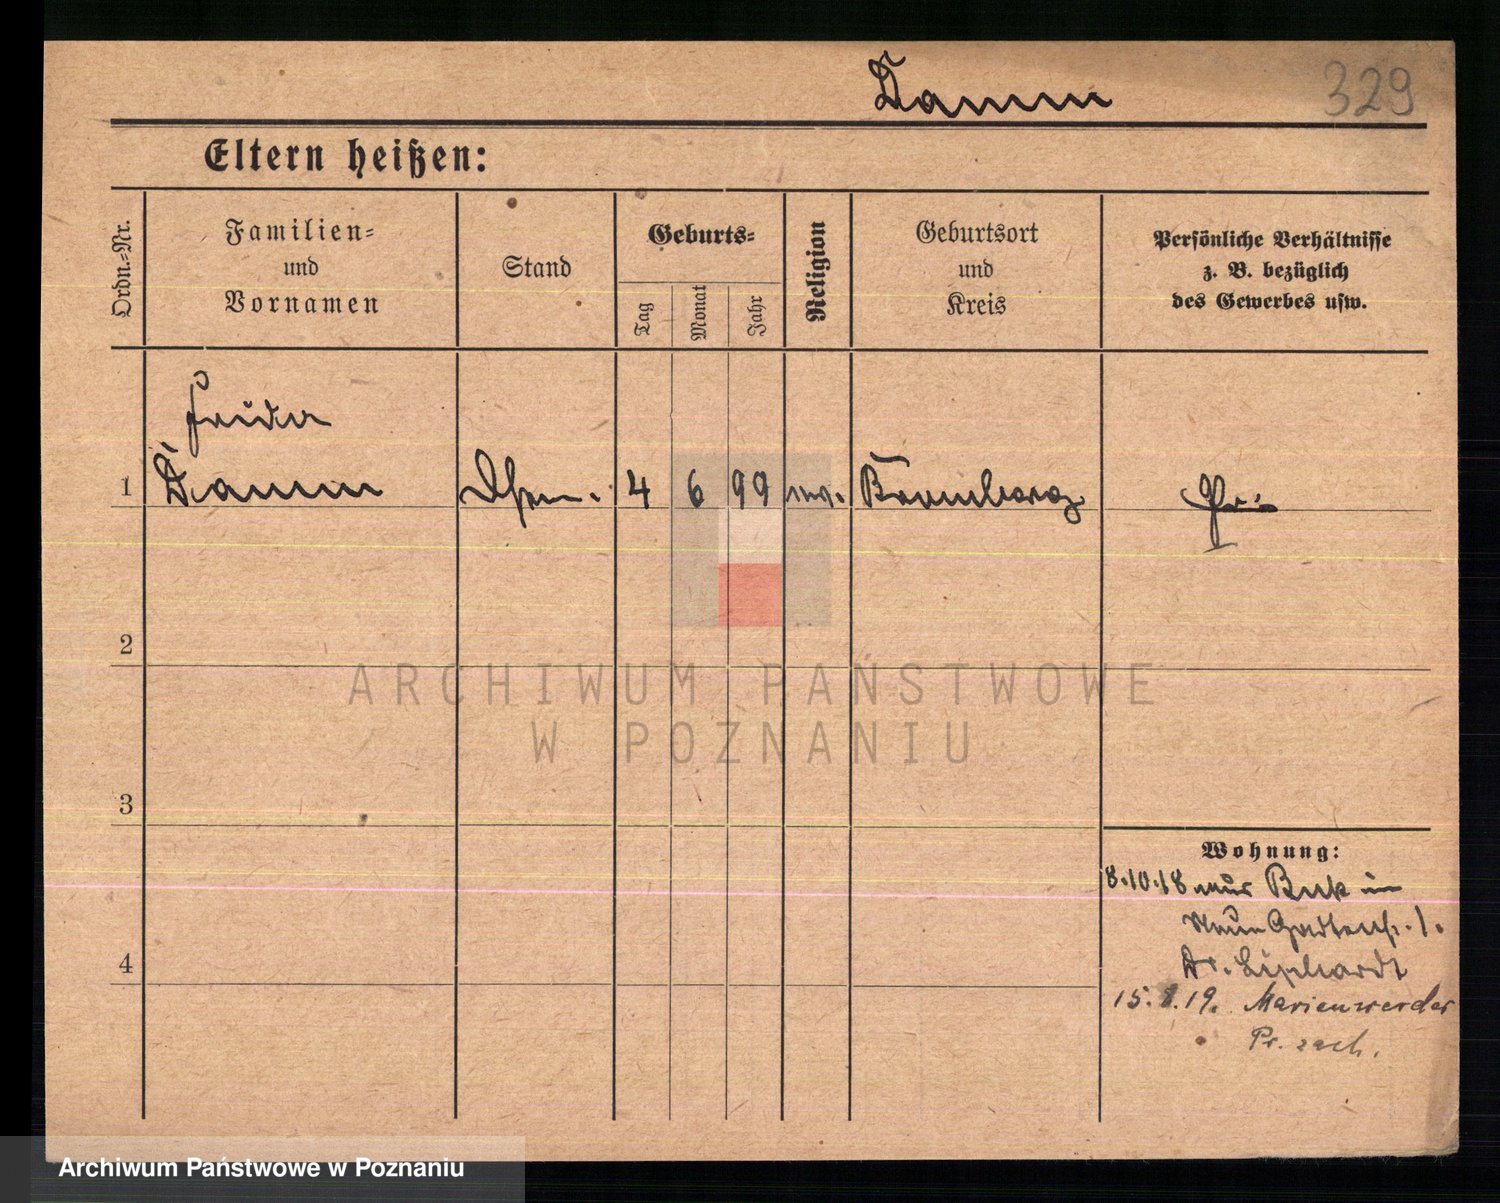 Damm 329
Eltern heißen:
Ordn.-Nr.
Familien-
und
Vornamen
Stand
Geburts-
Tag
Monat
Jahr
Religion
Geburtsort
und
Kreis
Persönliche Verhältnisse
z. B. bezüglich
des Gewerbes usw.
Frieda
1 Damm 4 6 99 Bromberg Pr.
2
3
4
Wohnung:
8.10.18 aus Buk in
Neue Gartenstr. 1.
Dr. Liphardt
15.8.19. Marienwerder
Pr. zach.
ARCHIWUM PAŃSTWOWE
W POZNANIU
Archiwum Państwowe w Poznaniu